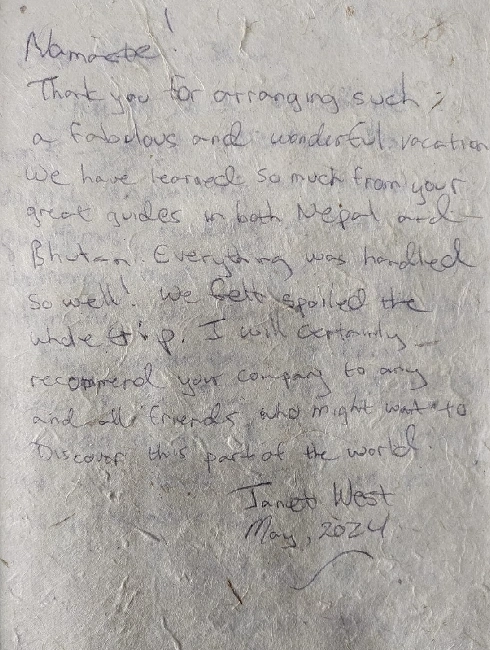 Namaste!
Thank you for arranging such
a fabulous and wonderful vacation
We have learned so much from your
great guides in both Nepal and
Bhutan. Everything was handled
so well! We felt spoiled the
whole trip. I will certainly
recommend your company to any
and all friends who might want to
Discover this part of the world.
Janet West
May, 2024